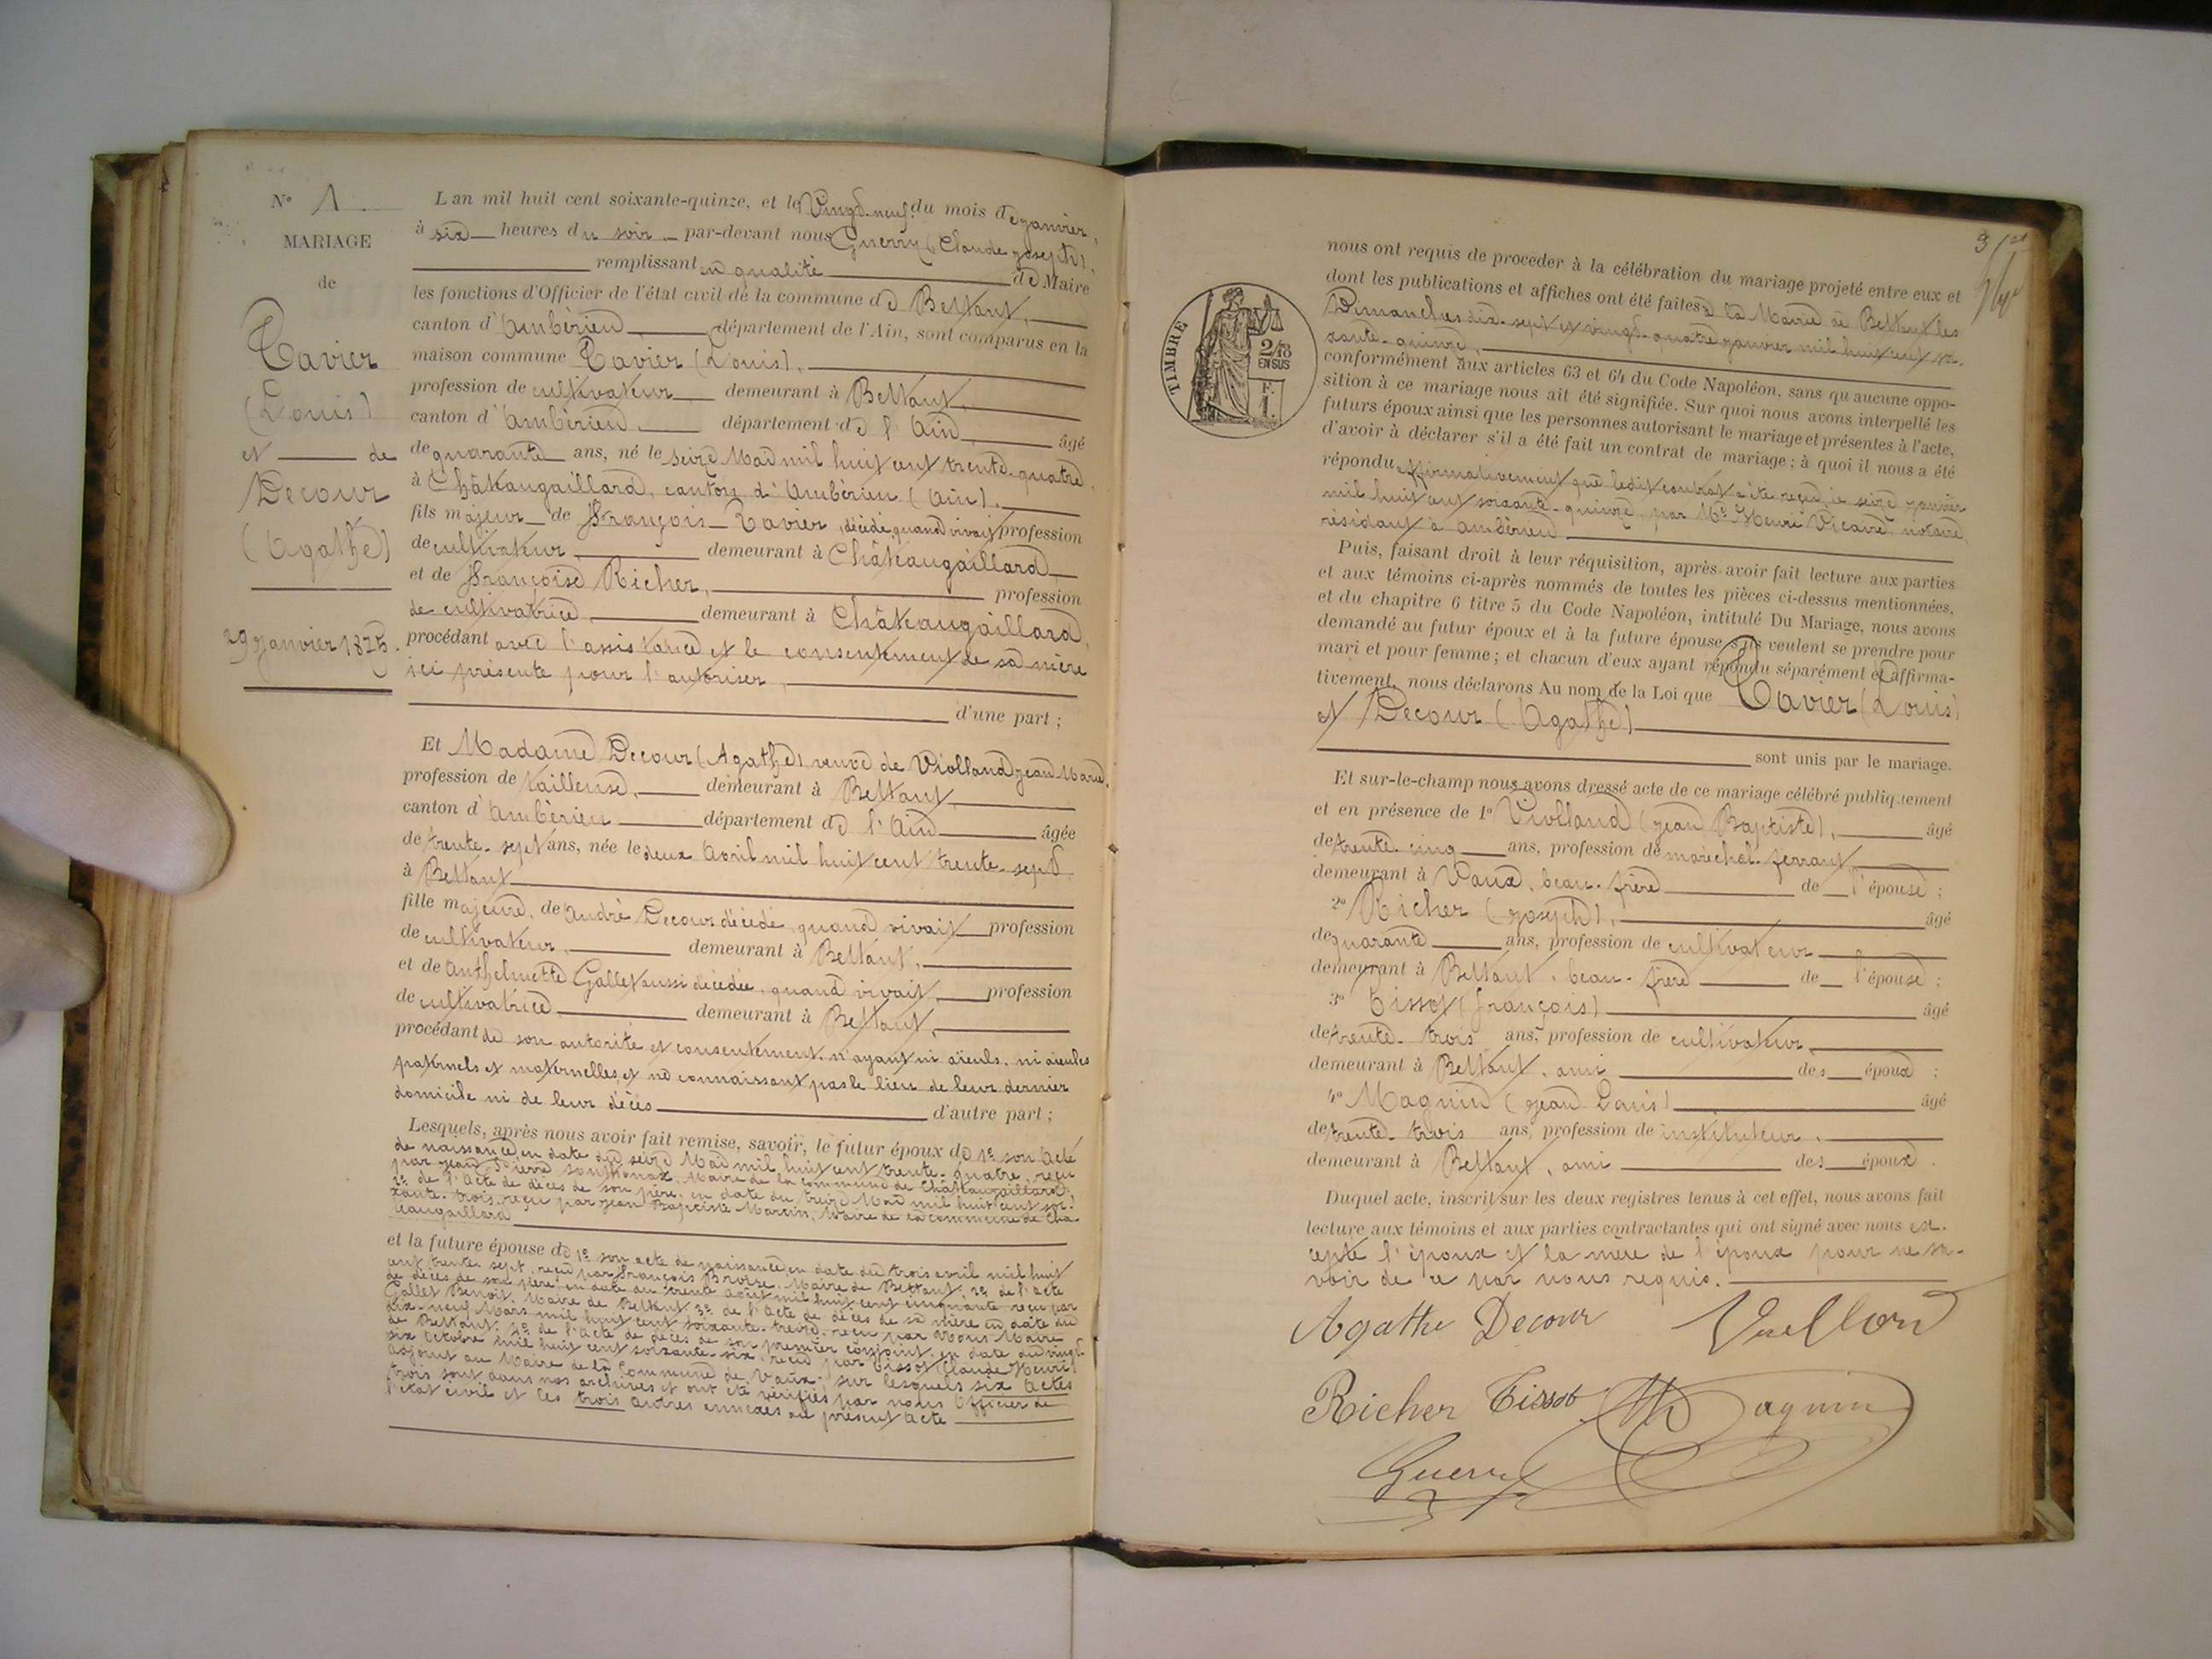 N° 1
MARIAGE
de
Tavier
(Louis)
et de
Decour
(Agathe)
29 Janvier 1875.
L'an mil huit cent soixante-quinze, et le Vingt-neuf du mois de Janvier,
à six heures du soir par-devant nous Guerry (Claude Joseph),
remplissant en qualité de Maire
les fonctions d'Officier de l'état civil de la commune de Bettant,
canton d'Ambérieu département de l'Ain, sont comparus en la
maison commune Tavier (Louis),
profession de cultivateur demeurant à Bettant,
canton d'Ambérieu, département de l'Ain, âgé
de quarante ans, né le seize Mai mil huit cent trente-quatre,
à Châteaugaillard, canton d'Ambérieu (Ain),
fils majeur de François Tavier, décédé, quand vivait profession
de cultivateur demeurant à Châteaugaillard
et de Françoise Richer, profession
de cultivatrice demeurant à Châteaugaillard,
procédant avec l'assistance et le consentement de sa mère
ici présente pour l'autoriser,
d'une part ;
Et Madame Decour (Agathe), veuve de Violland Jean Marie,
profession de tailleuse, demeurant à Bettant,
canton d'Ambérieu département de l'Ain âgée
de trente-sept ans, née le deux Avril mil huit cent trente-sept
à Bettant
fille majeure, de André Decour décédé, quand vivait profession
de cultivateur, demeurant à Bettant,
et de Anthelmette Gallet aussi décédée, quand vivait, profession
de cultivatrice demeurant à Bettant,
procédant de son autorité et consentement, n'ayant ni aïeuls, ni aïeules
paternels et maternelles, et ne connaissant pas le lieu de leur dernier
domicile ni de leur décès d'autre part ;
Lesquels, après nous avoir fait remise, savoir, le futur époux de 1° son Acte
de naissance en date du seize Mai mil huit cent trente-quatre, reçu
par Jean Pierre Sonthonax, Maire de la commune de Châteaugaillard,
2° de l'Acte de décès de son père, en date du treize Mai mil huit cent soi-
xante-trois, reçu par Jean Baptiste Martin, Maire de la commune de Châ-
teaugaillard
et la future épouse de 1° son acte de naissance en date du trois avril mil huit
cent trente-sept, reçu par François Broize, Maire de Bettant; 2° de l'acte
de décès de son père, en date du trente Août mil huit cent cinquante reçu par
Gallet Benoit, Maire de Bettant, 3° de l'Acte de décès de sa mère en date du
dix-neuf Mars mil huit cent soixante-treize, reçu par Nous Maire
de Bettant; 4° de l'acte de décès de son premier conjoint, en date du vingt-
six Octobre mil huit cent soixante-six, reçu par Tissot (Claude Henri)
Adjoint au Maire de la Commune de Vaux. Sur lesquels six Actes
trois sont dans nos archives et ont été vérifiés par nous Officier de
l'état civil et les trois autres annexés au présent Acte
nous ont requis de procéder à la célébration du mariage projeté entre eux et
dont les publications et affiches ont été faites à la Mairie de Bettant les
Dimanches dix-sept et vingt-quatre Janvier mil huit cent soi-
xante-quinze,
conformément aux articles 63 et 64 du Code Napoléon, sans qu'aucune oppo-
sition à ce mariage nous ait été signifiée. Sur quoi nous avons interpellé les
futurs époux ainsi que les personnes autorisant le mariage et présentes à l'acte,
d'avoir à déclarer s'il a été fait un contrat de mariage ; à quoi il nous a été
répondu affirmativement que ledit contrat a été reçu le seize Janvier
mil huit cent soixante-quinze, par M° Henri Vicaire, notaire,
résidant à Ambérieu
Puis, faisant droit à leur réquisition, après avoir fait lecture aux parties
et aux témoins ci-après nommés de toutes les pièces ci-dessus mentionnées,
et du chapitre 6 titre 5 du Code Napoléon, intitulé Du Mariage, nous avons
demandé au futur époux et à la future épouse s'ils veulent se prendre pour
mari et pour femme ; et chacun d'eux ayant répondu séparément et affirma-
tivement, nous déclarons Au nom de la Loi que Tavier (Louis)
et Decour (Agathe)
sont unis par le mariage.
Et sur-le-champ nous avons dressé acte de ce mariage célébré publiquement
et en présence de 1° Violland (Jean Baptiste), âgé
de trente-cinq ans, profession de maréchal-ferrant,
demeurant à Vaux, beau-frère de l'épouse ;
2° Richer (Joseph), âgé
de quarante ans, profession de cultivateur
demeurant à Bettant, beau-frère de l'épouse ;
3° Tissot (François) âgé
de trente-trois ans, profession de cultivateur,
demeurant à Bettant, ami des époux ;
4° Magnin (Jean Louis) âgé
de trente-trois ans, profession de instituteur,
demeurant à Bettant, ami des époux.
Duquel acte, inscrit sur les deux registres tenus à cet effet, nous avons fait
lecture aux témoins et aux parties contractantes qui ont signé avec nous ex-
cepté l'époux et la mère de l'époux pour ne sa-
voir de ce par nous requis.
Agathe Decour
Richer Tissot Magnin
Guerry
TIMBRE
2/10
EN SUS
F.
1.